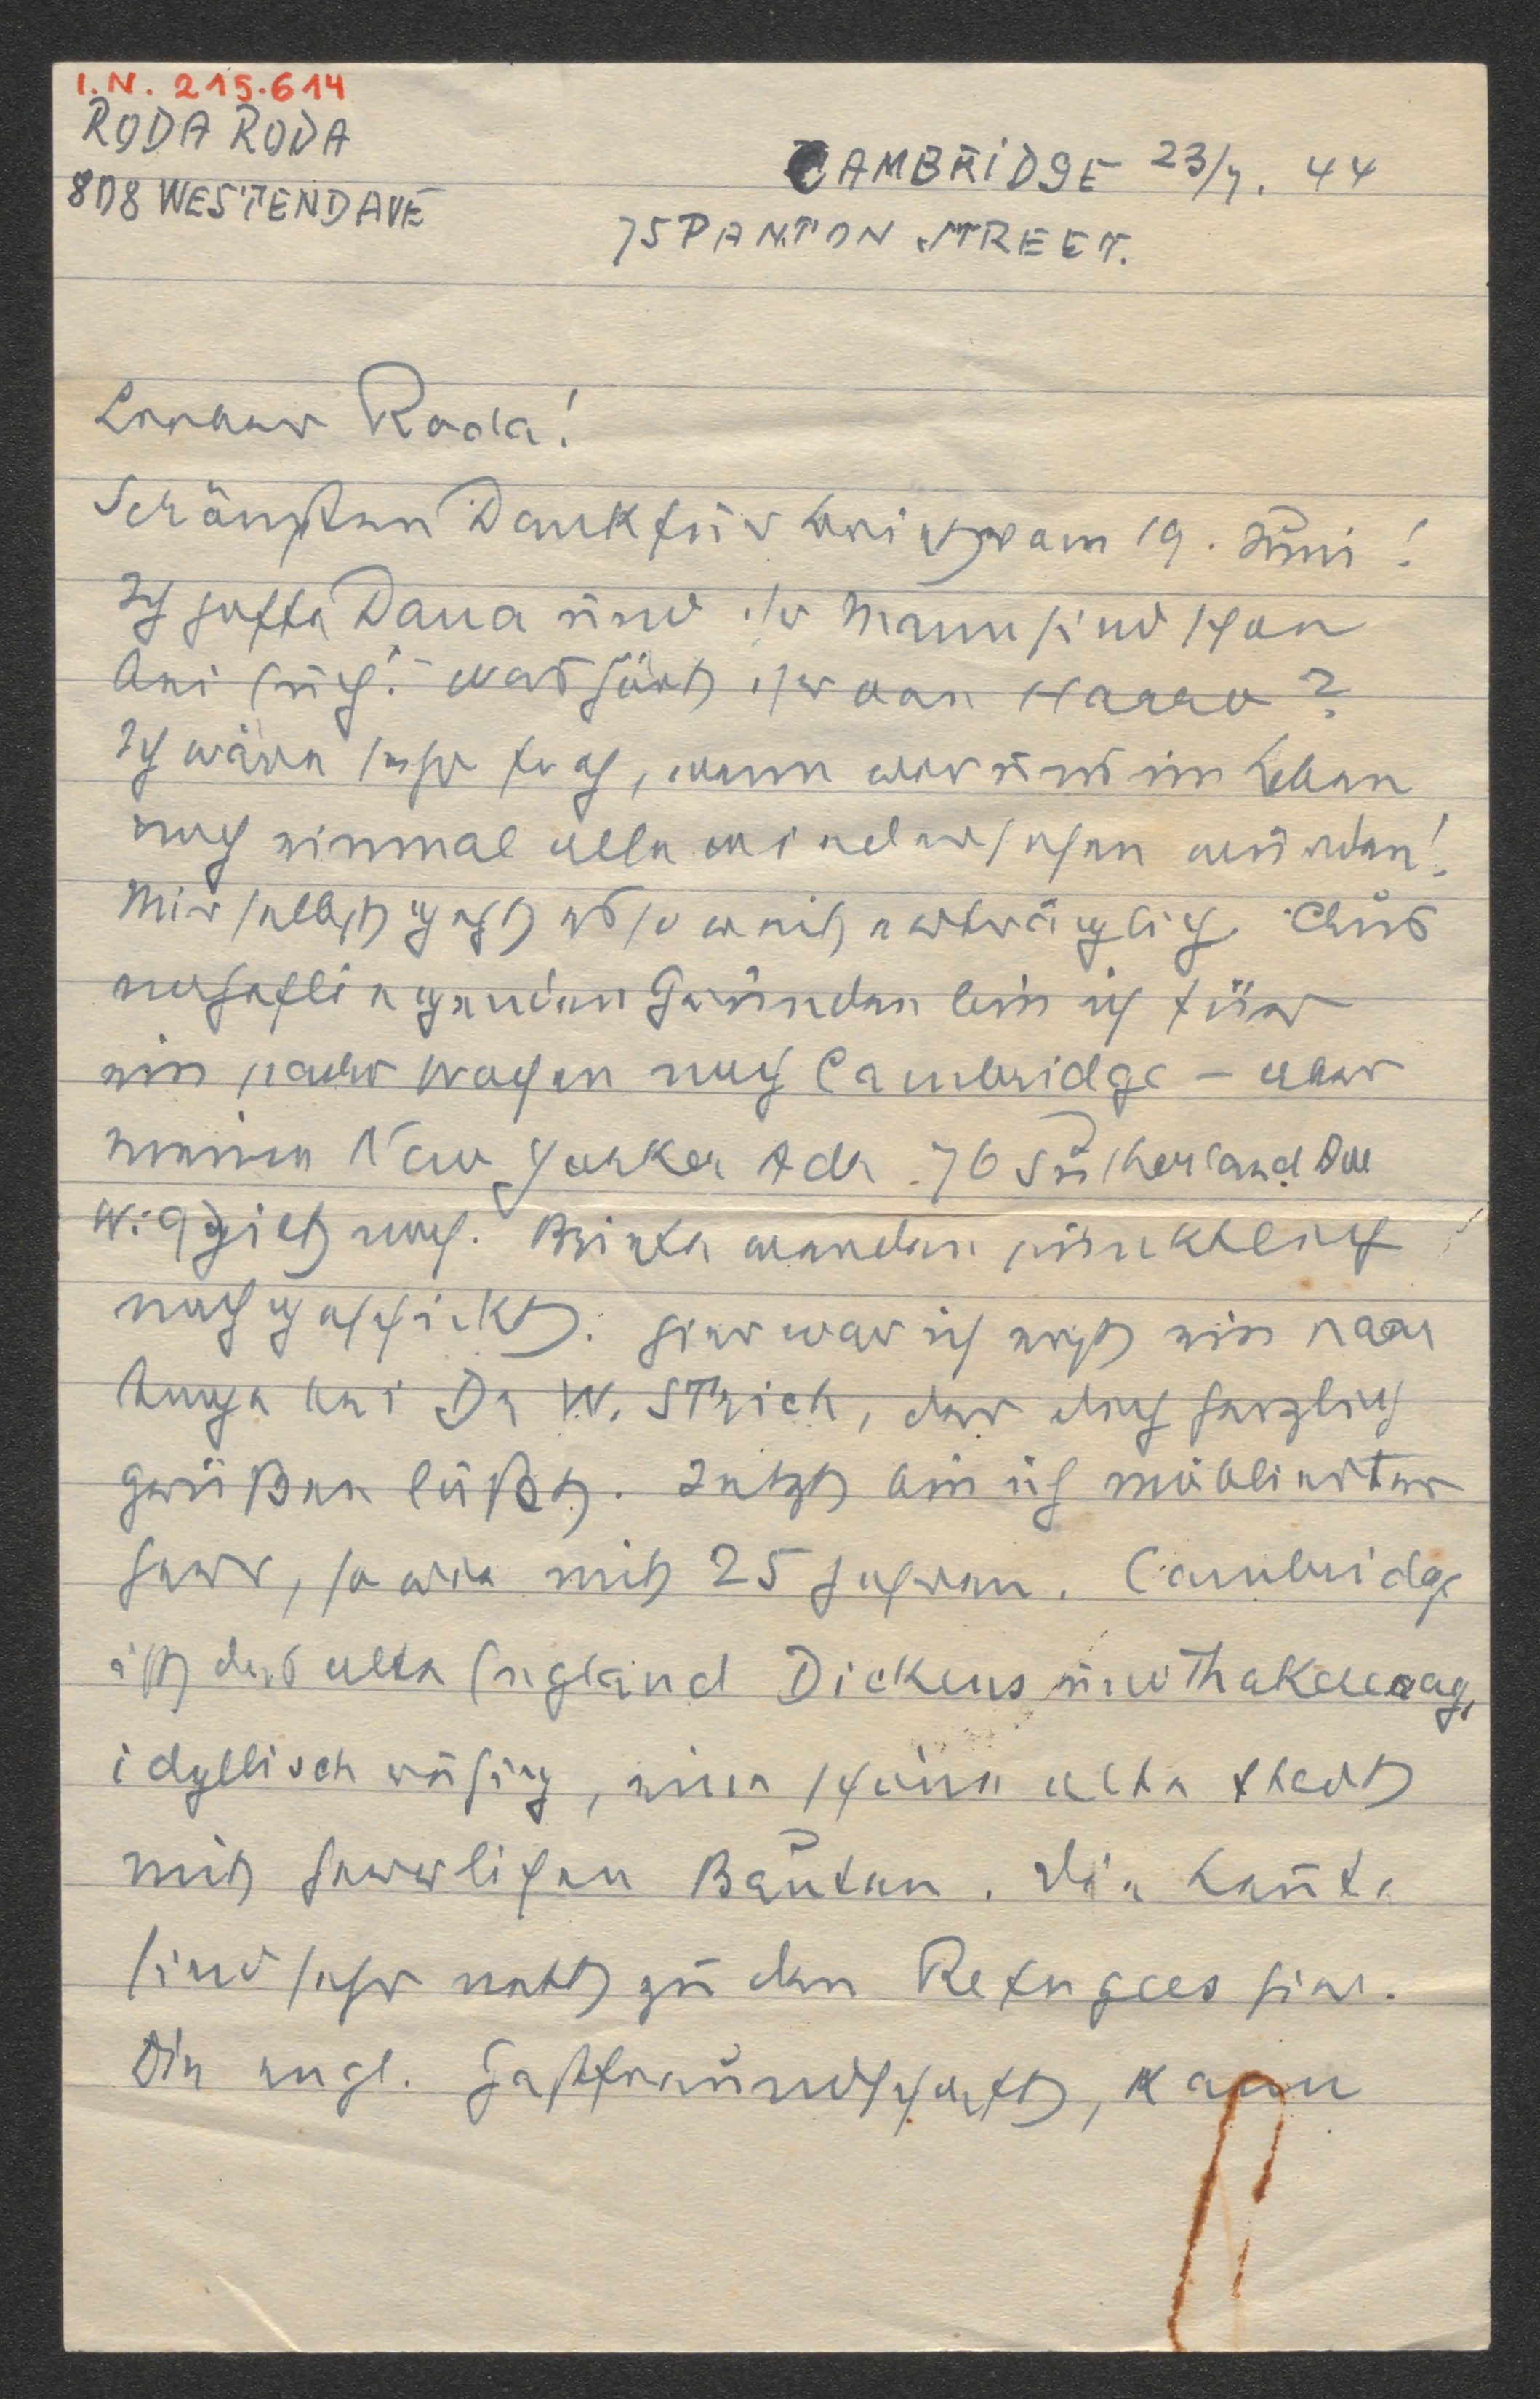 I.N. 215.614
RODA RODA
808 WESTENDAVE
CAMBRIDGE 23/7. 44
75 PANTON STREET.
Lieber Roda!
Schönsten Dank für vom 19. Juni!
Ich hoffe Dana und ihr Mann sind schon
bei Euch! Was hört ihr von
Ich wäre sehr froh, wenn wir uns im Leben
noch einmal alle wiedersehen würden!
Mir selbst geht es so weit erträglich. Aus
naheliegenden Gründen bin ich für
ein paar Wochen nach Cambridge – aber
meine New Yorker Adr. 76 Sutherland Ave
W. 9 gilt noch. Briefe werden pünktlich
nachgeschickt. Hier war ich erst ein paar
Tage bei Dr W. STrich, der dich herzlich
grüßen läßt. Jetzt bin ich möblierter
Herr, so wie mit 25 Jahren. Cambridge
ist das alte England Dickens und Thakeeray,
idyllisch ruhig, eine schöne alte Stadt
mit herrlichen Bauten. Die Leute
sind sehr nett zu den Refugees hier.
Die engl. Gastfreundschaft, kann